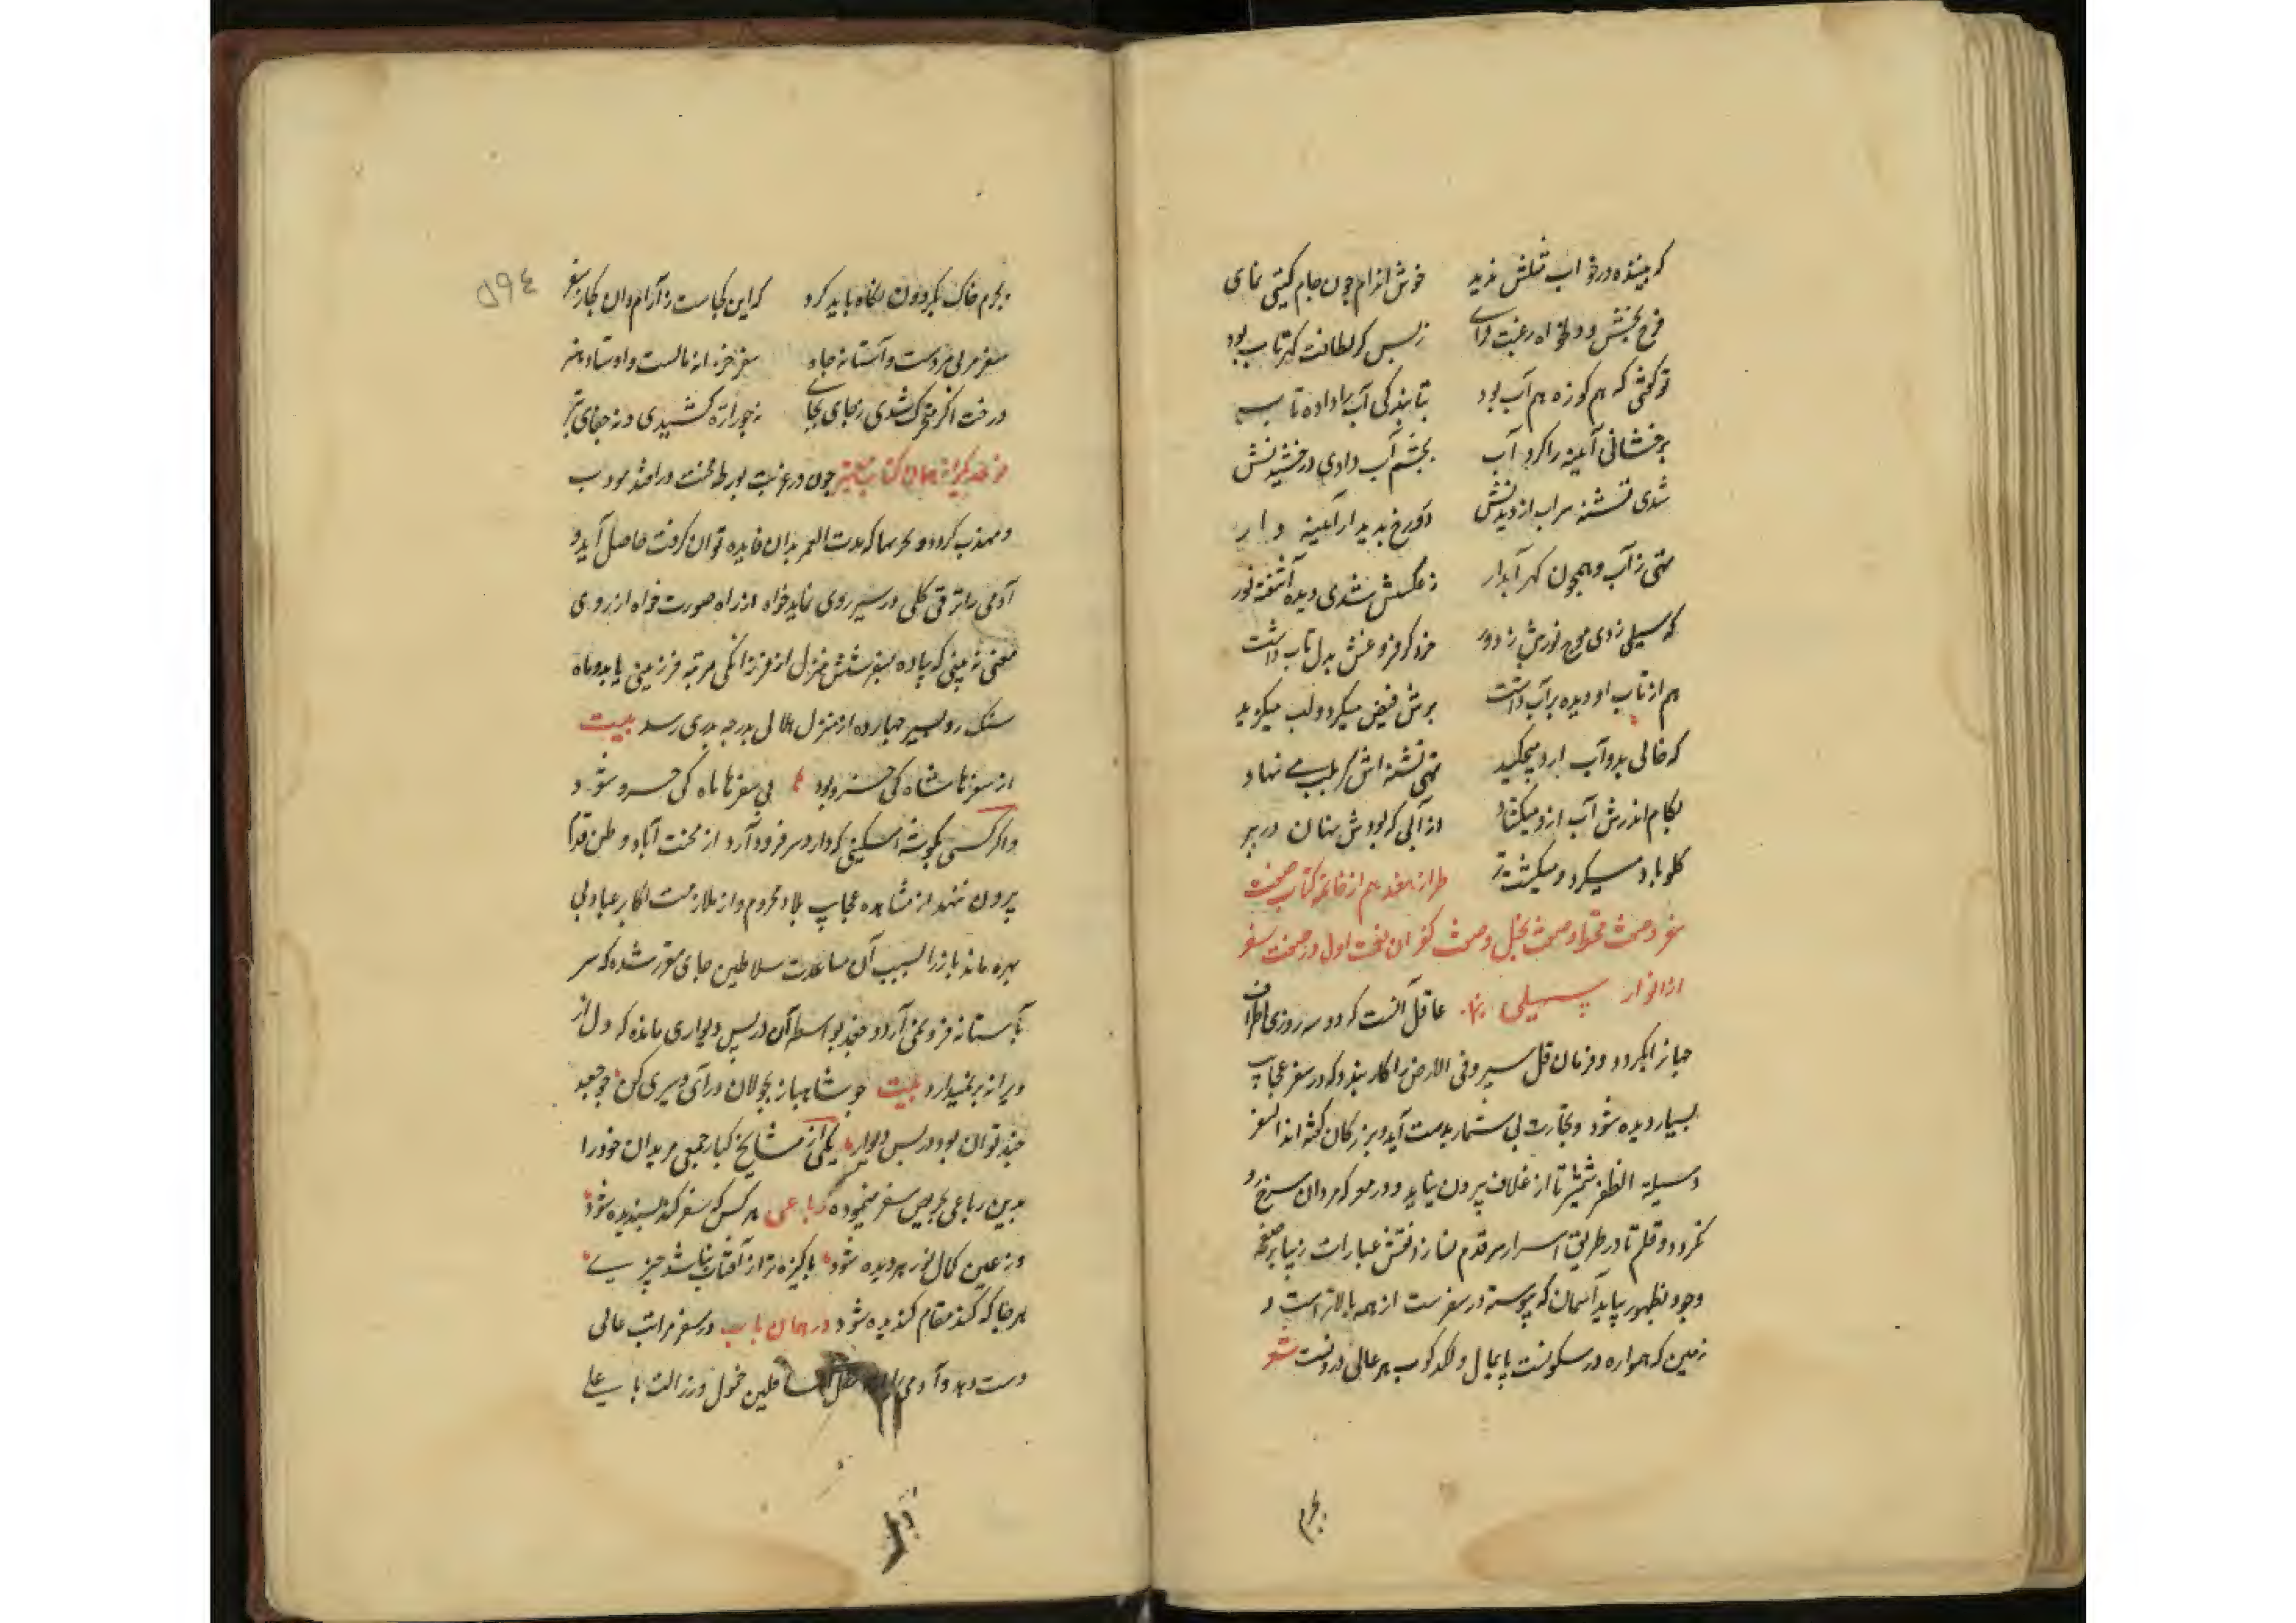 که بیننده در خواب مثلش ندید خوش اندام چون جام گیتی نمای
فرح بخش و دلخواه رغبت فزای ز بس کز لطافت گهر تاب بود
تو گفتی که هم کوزه هم آب بود بتابندگی آب را داده تاب
برخشانی آیینه را کرد آب بچشم آب دادی درخشیدنش
شدی تشنه سیراب از دیدنش رخ پدیدار آیینه وار
تهی ز آب و همچون گهر آبدار ز عکسش شدی دیده آشفته نور
که سیلی زدی موج نورش ز دور خرد کز فروغش بدل تاب داشت
هم از تاب او دیده پرآب داشت برش فیض میکرد و لب میکزید
که خالی بد و آب ازو میچکید تهی تشنه اش گر بلب می نهاد
بکام اندرش آب ازو میکشاد از آبی که بودش نهان در بر
گلو باد میکرد و میکشت تر طراز هفدهم از خاتمه کتاب صفت
سفر و صفت و صفت بخل و صفت کفران نعمت اول در صفت سفر
از انوار سهیلی عاقل آنست که دو سه روزی اطراف
جهان را بگردد و فرمان قل سیروا فی الارض را کار بندد که در سفر عجایب
بسیار دیده شود و تجارت بی شمار بدست آید و بزرگان گفته اند السفر
وسیلة الظفر شمشیر تا از غلاف بیرون نیاید در معرکه مردان سرخ رو
نگردد و قلم تا در طریق اسرار سر قدم نسازد نقش عبارات زیبا بر صفحه
وجود بظهور نیاید آسمان که پیوسته در سفرست از همه بالاتر است و
زمین که همواره در سکونست پایمال و لگدکوب هر عالی و دونست شعر
بجرم
۵۹۴
بجرم خاک بگردون نگاه باید کرد که این کجاست ز آرام و آن کجا ز سفر
سفر مربی مردست و آستانه جاه سفر خزانه مالست و اوستاد هنر
درخت اگر متحرک شدی ز جای بجا نه جور اره کشیدی و نه جفای تبر
همان کتاب چون در غربت بورطه محنت در افتد مودب
و مهذب گردد و تجربها که مدت العمر بدان فایده توان گرفت حاصل آید و
آدمی را ترقی کلی در سیر روی نماید خواه از راه صورت خواه از روی
معنی نه بینی که پیاده بسفر شش منزل از فرزانگی مرتبه فرزینی یابد و ماه
سبک رو بسیر چهارده از منزل هلال بدرجه بدری رسد بیت
از سفرها شاه کی خسرو بود بی سفرها ماه کی خسرو شود
و اگر کسی بگوشه مسکینی که دارد سر فرود آرد از محنت آباد وطن قدم
بیرون ننهد از مشاهده عجایب بلاد محروم و از ملازمت اکابر عباد بی
بهره ماند باز را بسبب آن ساعدت سلاطین جای مقرر شده که سر
بآستانه فرو نمی آرد و جغد بواسطه آن در پس دیواری مانده که دل از
ویرانه بر نمیدارد بیت چو شاهباز بجولان درآی و سیری کن چو جغد
چند توان بود در پس دیوار یکی از مشایخ کبار جمعی مریدان خود را
بدین رباعی تحریص سفر مینموده رباعی هر کس که سفر کند پسندیده شود
وز عین کمال نور هر دیده شود پاکیزه تر از آفتاب نباشد چیزی
هر جا که کند مقام گندیده شود در همان باب در سفر مراتب عالی
دست دهد و آدمی سافلین خمول و رذالت با علی